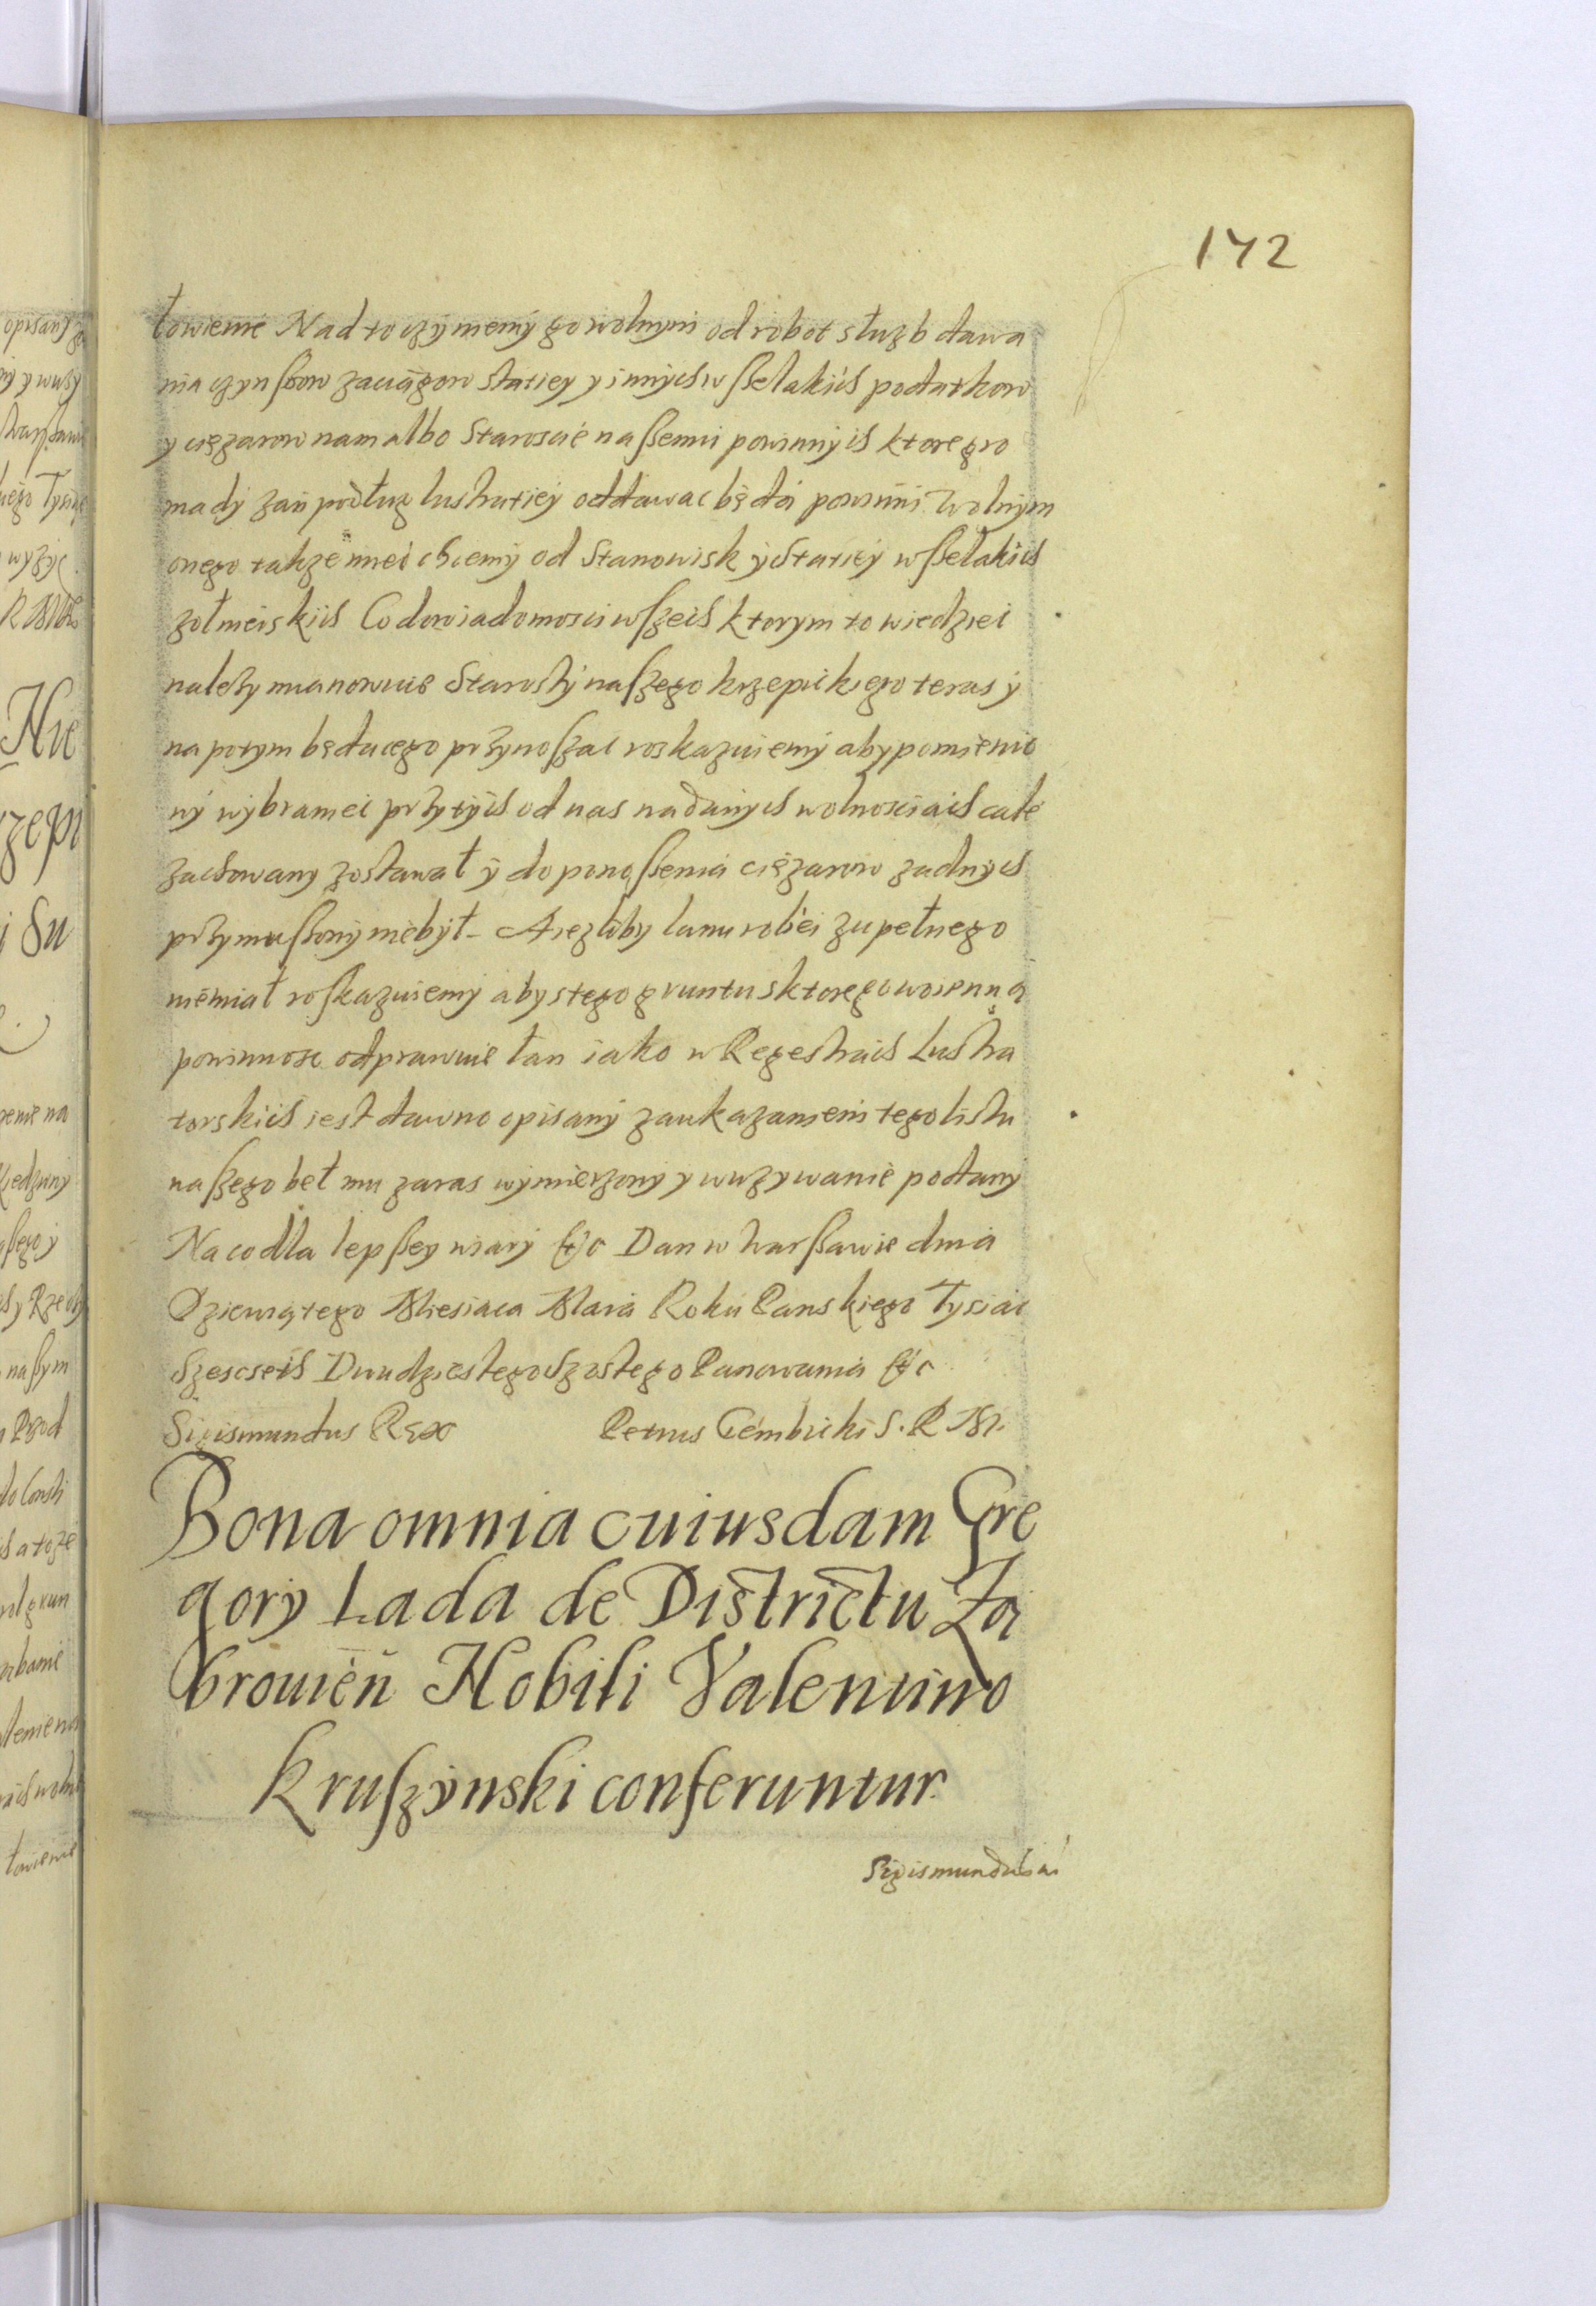 172
łowienie Nad to czÿniemÿ go wolnym od robot słuzb dawa
nia czynßow zaciągow Statiey y innych wßelakich podatkow
y cięzarow nam albo Staroscie naßemu powinnÿch ktore gro
madÿ zań podług lustratieÿ oddawac będą powinni Wolnÿm
onego takze miec chcemÿ od Stanowisk ÿ Statieÿ wßelakich
zołnierskich Co do wiadomosci wszech ktorym to wiedziec
nalezy mianowicie Starostÿ naszego krzepickiego teras ÿ
na potym będacego przynoszac roskazuiemÿ aby pomienio
nÿ wÿbraniec przÿ tÿch od nas nadanÿch wolnosciach cale
zachowany zostawał ÿ do ponoßenia cięzarow zadnÿch
przymußonÿ nie bÿł. A iezliby lanu roliei zupełnego
nie miał roskazuiemÿ aby s tego gruntu s ktorego woienną
powinnosc odprawuie łan iako w Regestrach Lustra
torskich iest dawno opisanÿ za ukazaniem tego listu
naszego beł mu zaras wÿmierzonÿ y w uzywanie podany
Na co dla lepßey wiarÿ &c Dan w Warßawie dnia
Dziewiątego Miesiaca Maia Roku Panskiego Tysiac
Szescseth Dwudziestego Szostego Panowania &c
Sigismundus Rex Petrus Gembicki S. R. M.
Bona omnia cuiusdam Gre
gorÿ Lada de Districtu Za
browien Nobili Valentino
Kruszÿnski conferuntur.
Sigismundus
opisanÿ
Tysiac
R M
Nie
zepi
Su
łowienie